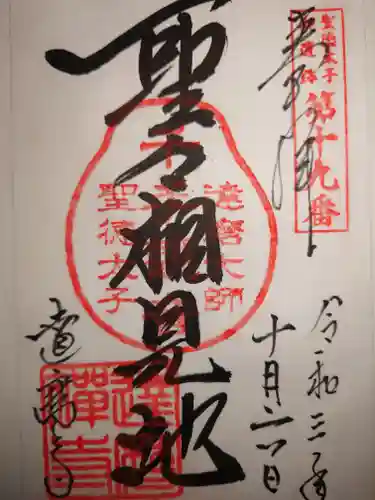 聖徳太子
御遺跡
第十九番
奉拝
聖々相見地
達磨大師
聖徳太子
令和三年
十月二六日
達磨寺
達磨
禅寺